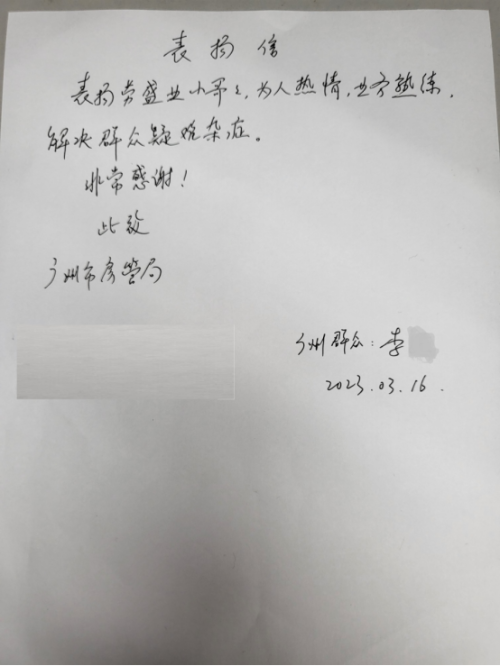 表扬信
表扬劳盛业小哥哥,为人热情,业务熟练,
解决群众疑难杂症。
非常感谢!
此致
广州市房管局
广州群众:李
2023.03.16.